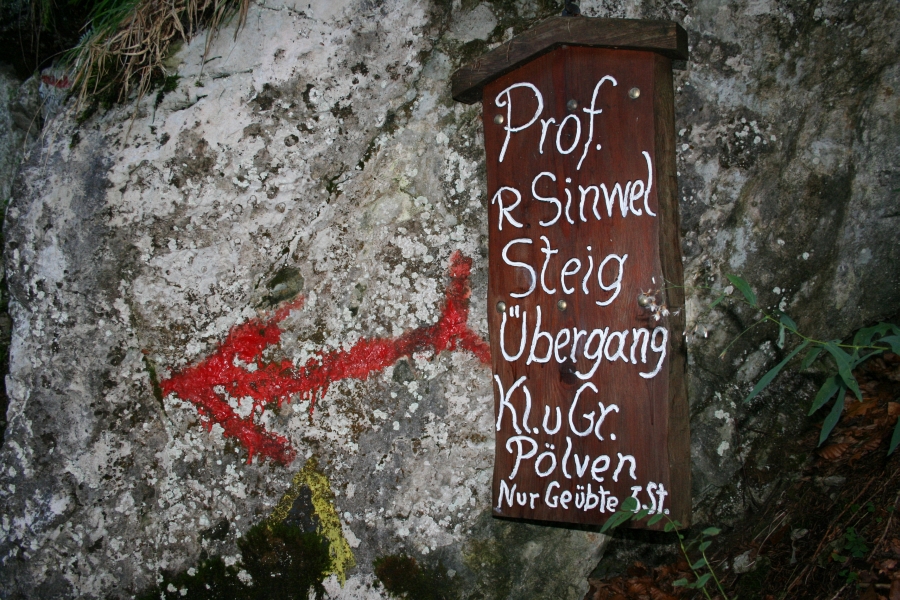 Prof.
R Sinwel
Steig
Übergang
Kl. u Gr.
Pölven
Nur Geübte J.St.